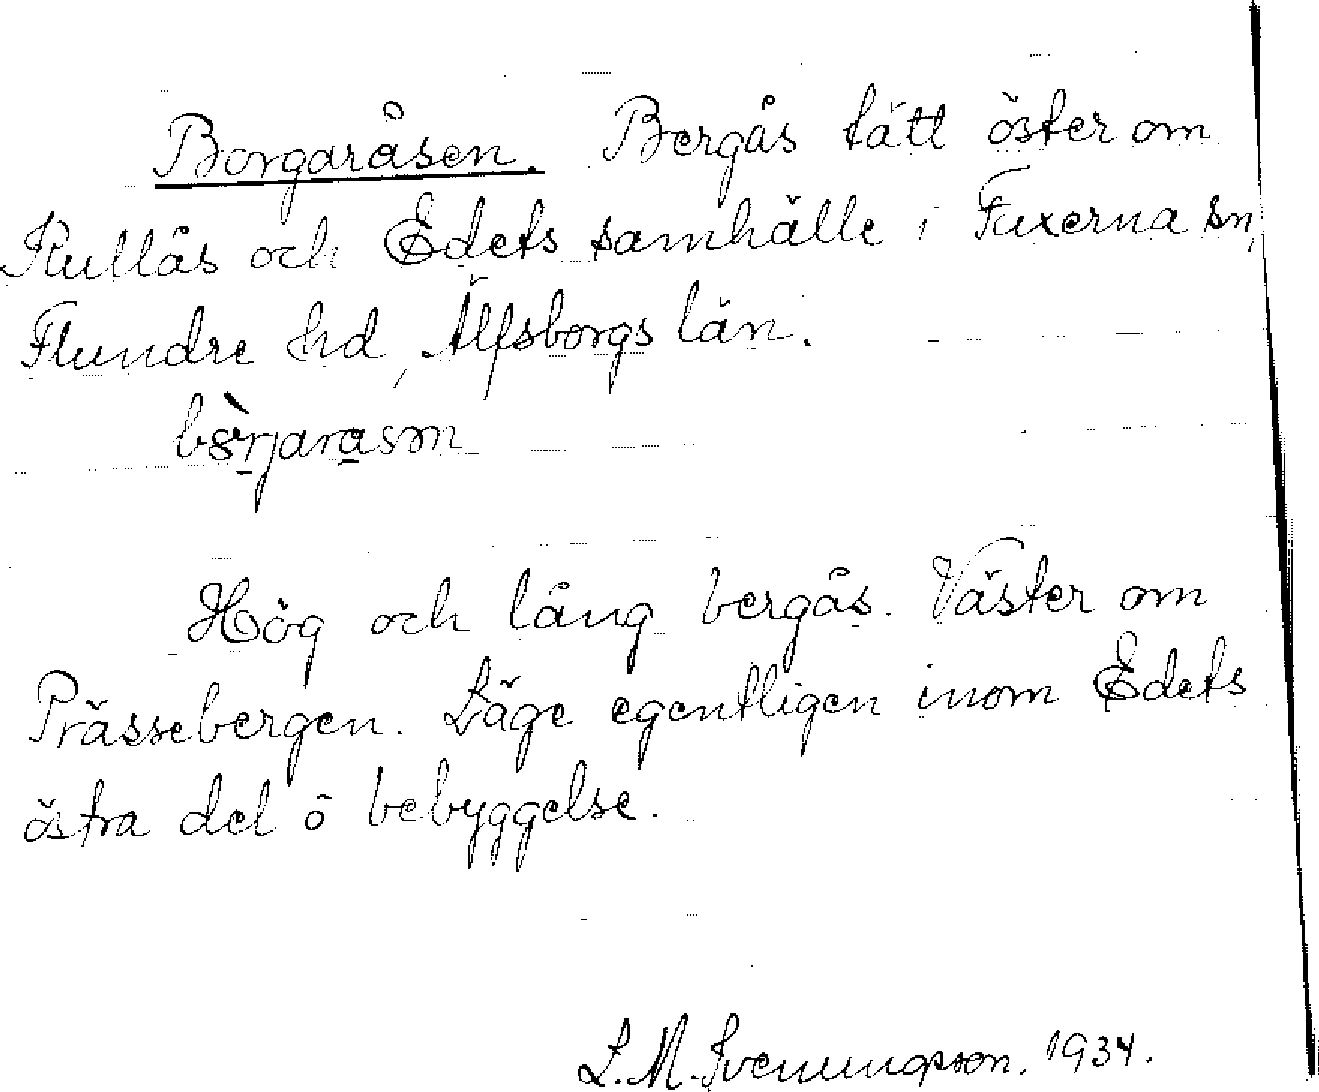 Borgaråsen. Bergås tätt öster om
Kullås och Edets samhälle i Fuxerna sn,
Flundre hd, Älfsborgs län.
Hög och lång bergås. Väster om
Prässebergen. Läge egentligen inom Edets
östra del o bebyggelse.
L.M. Svenungsson. 1934.